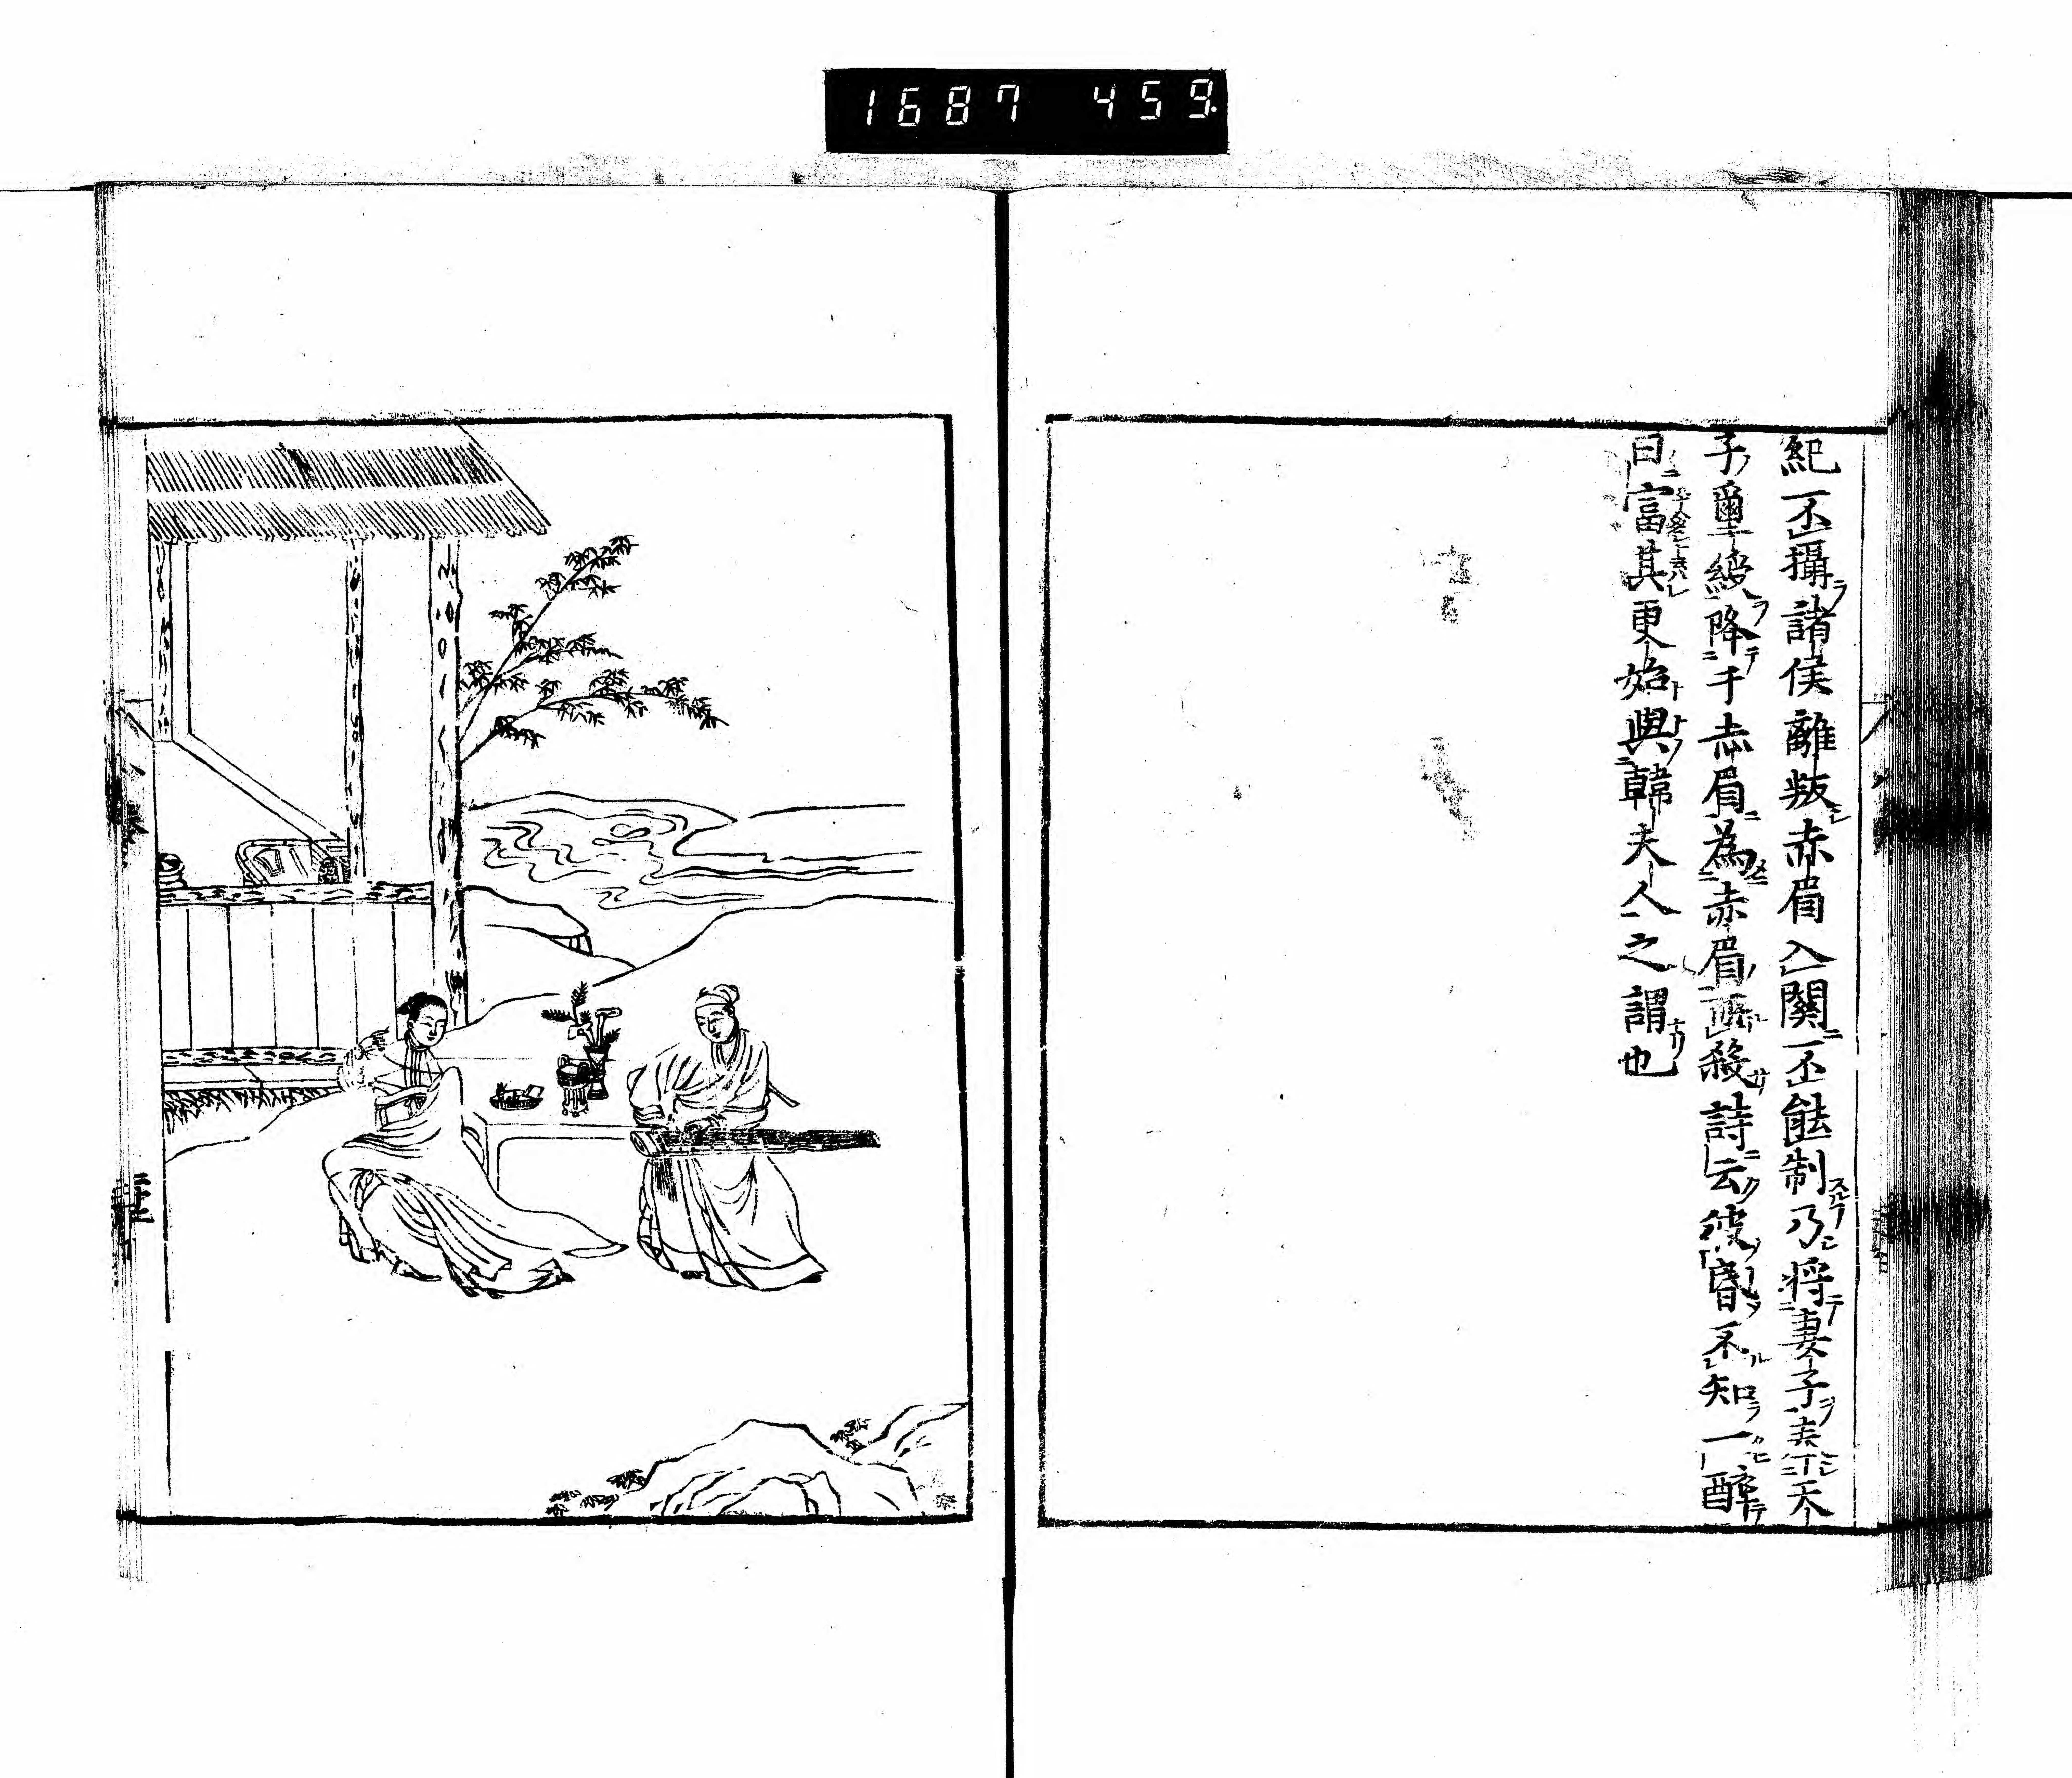 1687 459
紀不攝諸侯離叛赤眉入關不能制乃将妻子奉天
子璽綬降于赤眉為赤眉所殺詩云彼昬不知一醉
日富其更始與韓夫人之謂也